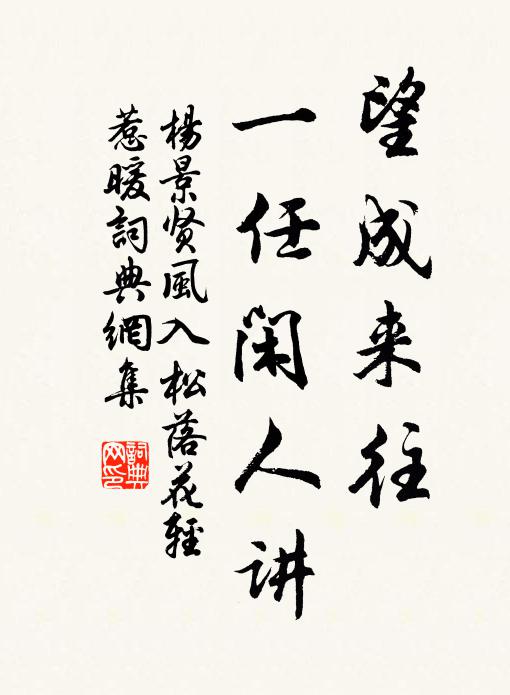 望成来往
一任闲人讲
楊景贤風入松落花輕
惹暖詞典網集
詞典
网印